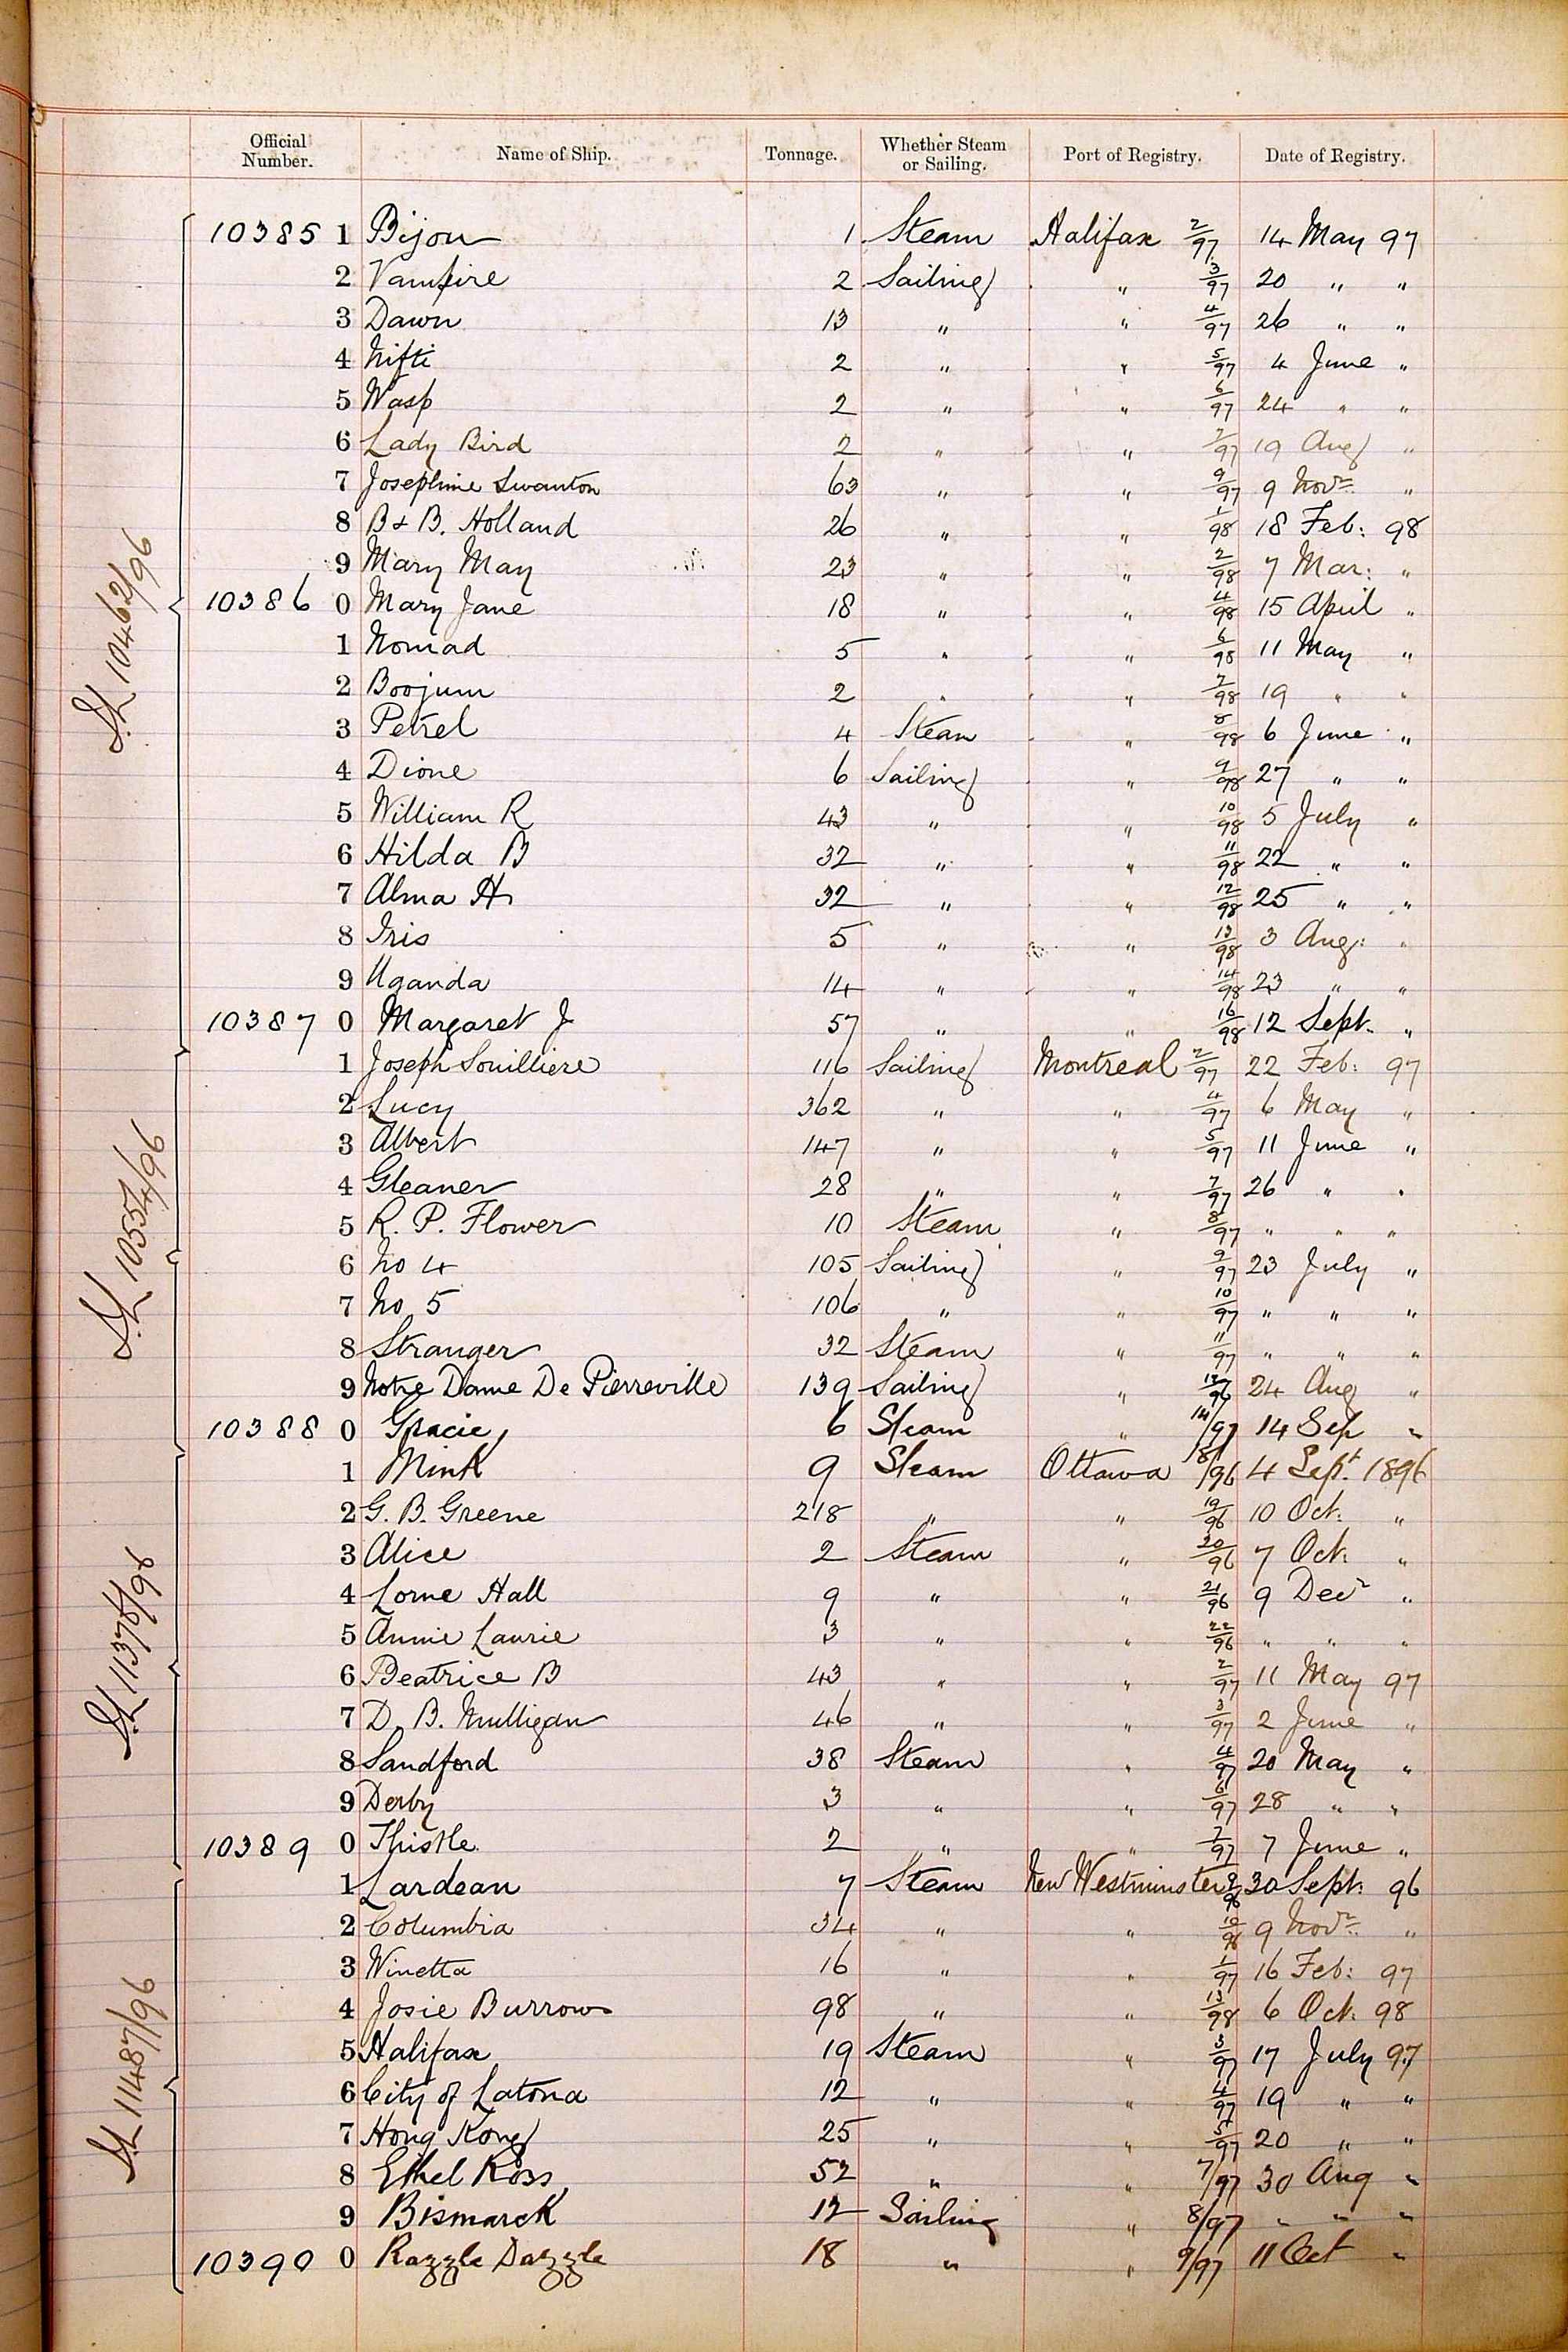 Official Number. Name of Ship. Tonnage. Whether Steam or Sailing. Port of Registry. Date of Registry.
10385 1 Bijou 1 Steam Halifax 2/97 14 May 97
2 Vampire 2 Sailing " 3/97 20 " "
3 Dawn 13 " " 4/97 26 " "
4 Nifti 2 " " 5/97 4 June "
5 Wasp 2 " " 6/97 24 " "
6 Lady Bird 2 " " 7/97 19 Aug "
7 Josephine Swanton 63 " " 9/97 9 Novr "
8 B & B. Holland 26 " " 1/98 18 Feb: 98
9 Mary May 23 " " 2/98 7 Mar: "
10386 0 Mary Jane 18 " " 4/98 15 April "
1 Nomad 5 " " 6/98 11 May "
2 Boojum 2 " " 7/98 19 " "
3 Petrel 4 Steam " 8/98 6 June "
4 Dione 6 Sailing " 9/98 27 " "
5 William R 43 " " 10/98 5 July "
6 Hilda B 32 " " 11/98 22 " "
7 Alma H 32 " " 12/98 25 " "
8 Iris 5 " " 13/98 3 Aug: "
9 Uganda 14 " " 14/98 23 " "
10387 0 Margaret J 57 " " 16/98 12 Sept. "
1 Joseph Souilliere 116 Sailing Montreal 2/97 22 Feb: 97
2 Lucy 362 " " 4/97 6 May "
3 Albert 147 " " 5/97 11 June "
4 Gleaner 28 " " 7/97 26 " "
5 R. P. Flower 10 Steam " 8/97 " " "
6 No 4 105 Sailing " 9/97 23 July "
7 No 5 106 " " 10/97 " " "
8 Stranger 32 Steam " 11/97 " " "
9 Notre Dame De Pierreville 139 Sailing " 24 Aug "
10388 0 Gracie 6 Steam " 14/97 14 Sep "
1 Mink 9 Steam Ottawa 18/96 4 Sept. 1896
2 G. B. Greene 218 " " 19/96 10 Oct: "
3 Alice 2 Steam " 20/96 7 Oct: "
4 Lorne Hall 9 " " 21/96 9 Decr "
5 Annie Laurie 3 " " 22/96 " " "
6 Beatrice B 43 " " 2/97 11 May 97
7 D. B. Mulligan 46 " " 3/97 2 June "
8 Sandford 38 Steam " 4/97 20 May "
9 Derby 3 " " 6/97 28 " "
10389 0 Thistle 2 " " 7/97 7 June "
1 Lardean 7 Steam New Westminster 9/96 30 Sept: 96
2 Columbia 34 " " 10/96 9 Novr "
3 Winetta 16 " " 1/97 16 Feb: 97
4 Josie Burrows 98 " " 13/98 6 Oct. 98
5 Halifax 19 Steam " 3/97 17 July 97
6 City of Latona 12 " " 4/97 19 " "
7 Hong Kong 25 " " 5/97 20 " "
8 Ethel Ross 52 " " 7/97 30 Aug "
9 Bismarck 12 Sailing " 8/97 " " "
10390 0 Razzle Dazzle 18 " " 9/97 11 Oct "
10462/96
10554/96
11378/96
11487/96